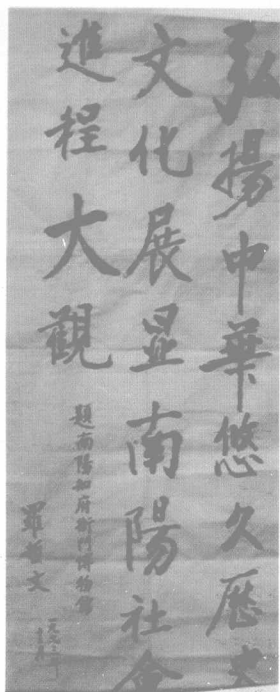 弘揚中華悠久歷史
文化展显南陽社会
進程大觀
題南陽知府衙門博物館
羅哲文